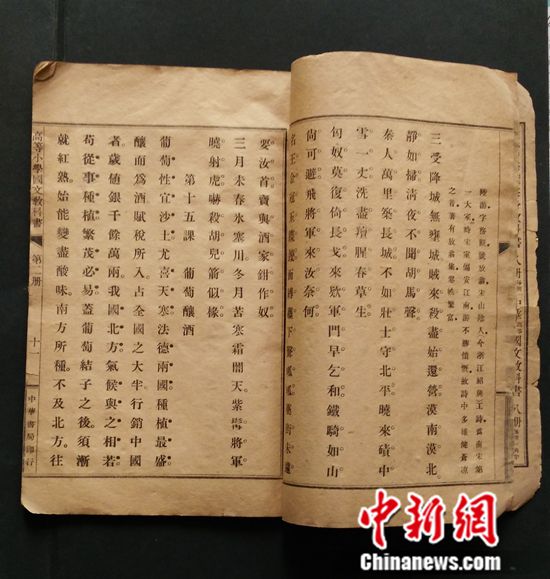 國文教科書 八册
陸游字務觀號放翁宋山陰人今浙江紹興
一大家時宋室偏安江南游不勝憤慨故詩中多雄健蒼涼
之音著有放翁集
三受降城無壅城。賊來殺盡始還營。漠南漠北。
靜如掃。清夜不聞胡馬聲。
秦人萬里築長城。不如壯士守北平。曉來磧中
雪一丈。洗盡羶腥春草生。
匈奴莫復倚長戈。來款軍門早乞和。鐵騎如山
尚可避。飛將軍來汝奈何。
名王金冠玉
要汝首。賣與酒家鉗作奴。
三月未春冰塞川。冬月苦寒霜闇天。紫髯將軍
曉射虎。嚇殺胡兒箭似椽。
第十五課 葡萄釀酒
葡萄性宜沙土。尤喜天寒。法德南國。種植最盛。
釀而爲酒。賦稅所入。占全國之大半。行銷中國
者。歲值銀千餘萬兩。我國北方。氣候與之相若。
苟從事種植。繁茂必易。蓋葡萄結子之後。須漸
就紅熟。始能變盡酸味。南方所種。不及北方。往
高等小學國文教科書 第二册 十一 中華書局印行
中新網
Chinanews.com